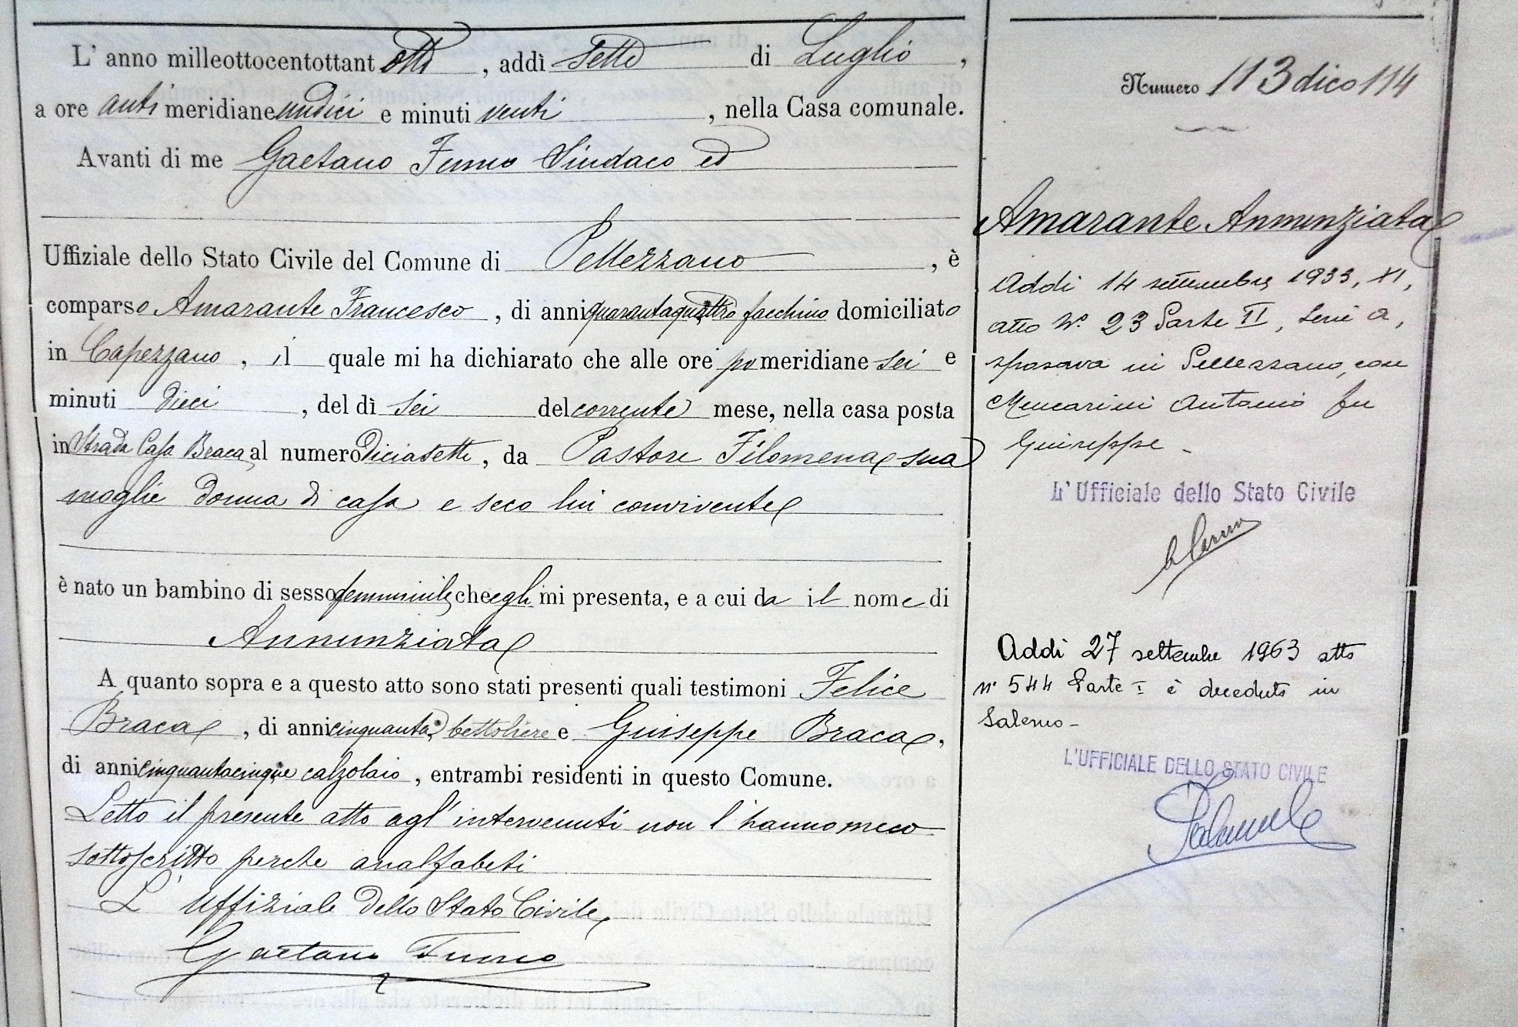 L' anno milleottocentottantotto, addì sette di Luglio,
a ore anti meridiane undici e minuti venti, nella Casa comunale.
Avanti di me Gaetano Fumo Sindaco ed
Uffiziale dello Stato Civile del Comune di Pellezzano, è
comparso Amarante Francesco, di anni quarantaquattro facchino domiciliato
in Capezzano, il quale mi ha dichiarato che alle ore pomeridiane sei e
minuti dieci, del dì sei del corrente mese, nella casa posta
in Strada Casa Braca al numero diciasette, da Pastore Filomena sua
moglie donna di casa e seco lui convivente
è nato un bambino di sesso femminile che egli mi presenta, e a cui da il nome di
Annunziata
A quanto sopra e a questo atto sono stati presenti quali testimoni Felice
Braca, di anni cinquanta, bettoliere e Guiseppe Braca,
di anni cinquantacinque calzolaio, entrambi residenti in questo Comune.
Letto il presente atto agl'intervenuti non l'hanno meco
sottoscritto perche analfabeti
L'Uffiziale dello Stato Civile
Gaetano Fumo
Numero 113 dico 114
Amarante Annunziata
Addi 14 settembre 1933, XI,
atto N. 23 Parte II, Serie a,
sposava in Pellezzano, con
Mencarini Antonio fu
Guiseppe -
L'Ufficiale dello Stato Civile
Addi 27 settembre 1963 atto
n° 544 Parte I è deceduta in
Salerno -
L'UFFICIALE DELLO STATO CIVILE